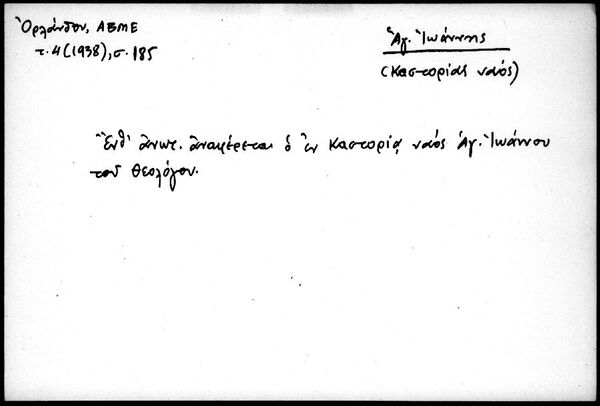 Ὀρλάνδου, ΑΒΜΕ
τ. 4 (1938), σ. 185
Ἁγ. Ἰωάννης
(Καστορίας ναός)
Ἔνθ' ἄνωτ. ἀναφέρεται ὁ ἐν Καστορίᾳ ναός Ἁγ. Ἰωάννου
τοῦ Θεολόγου.